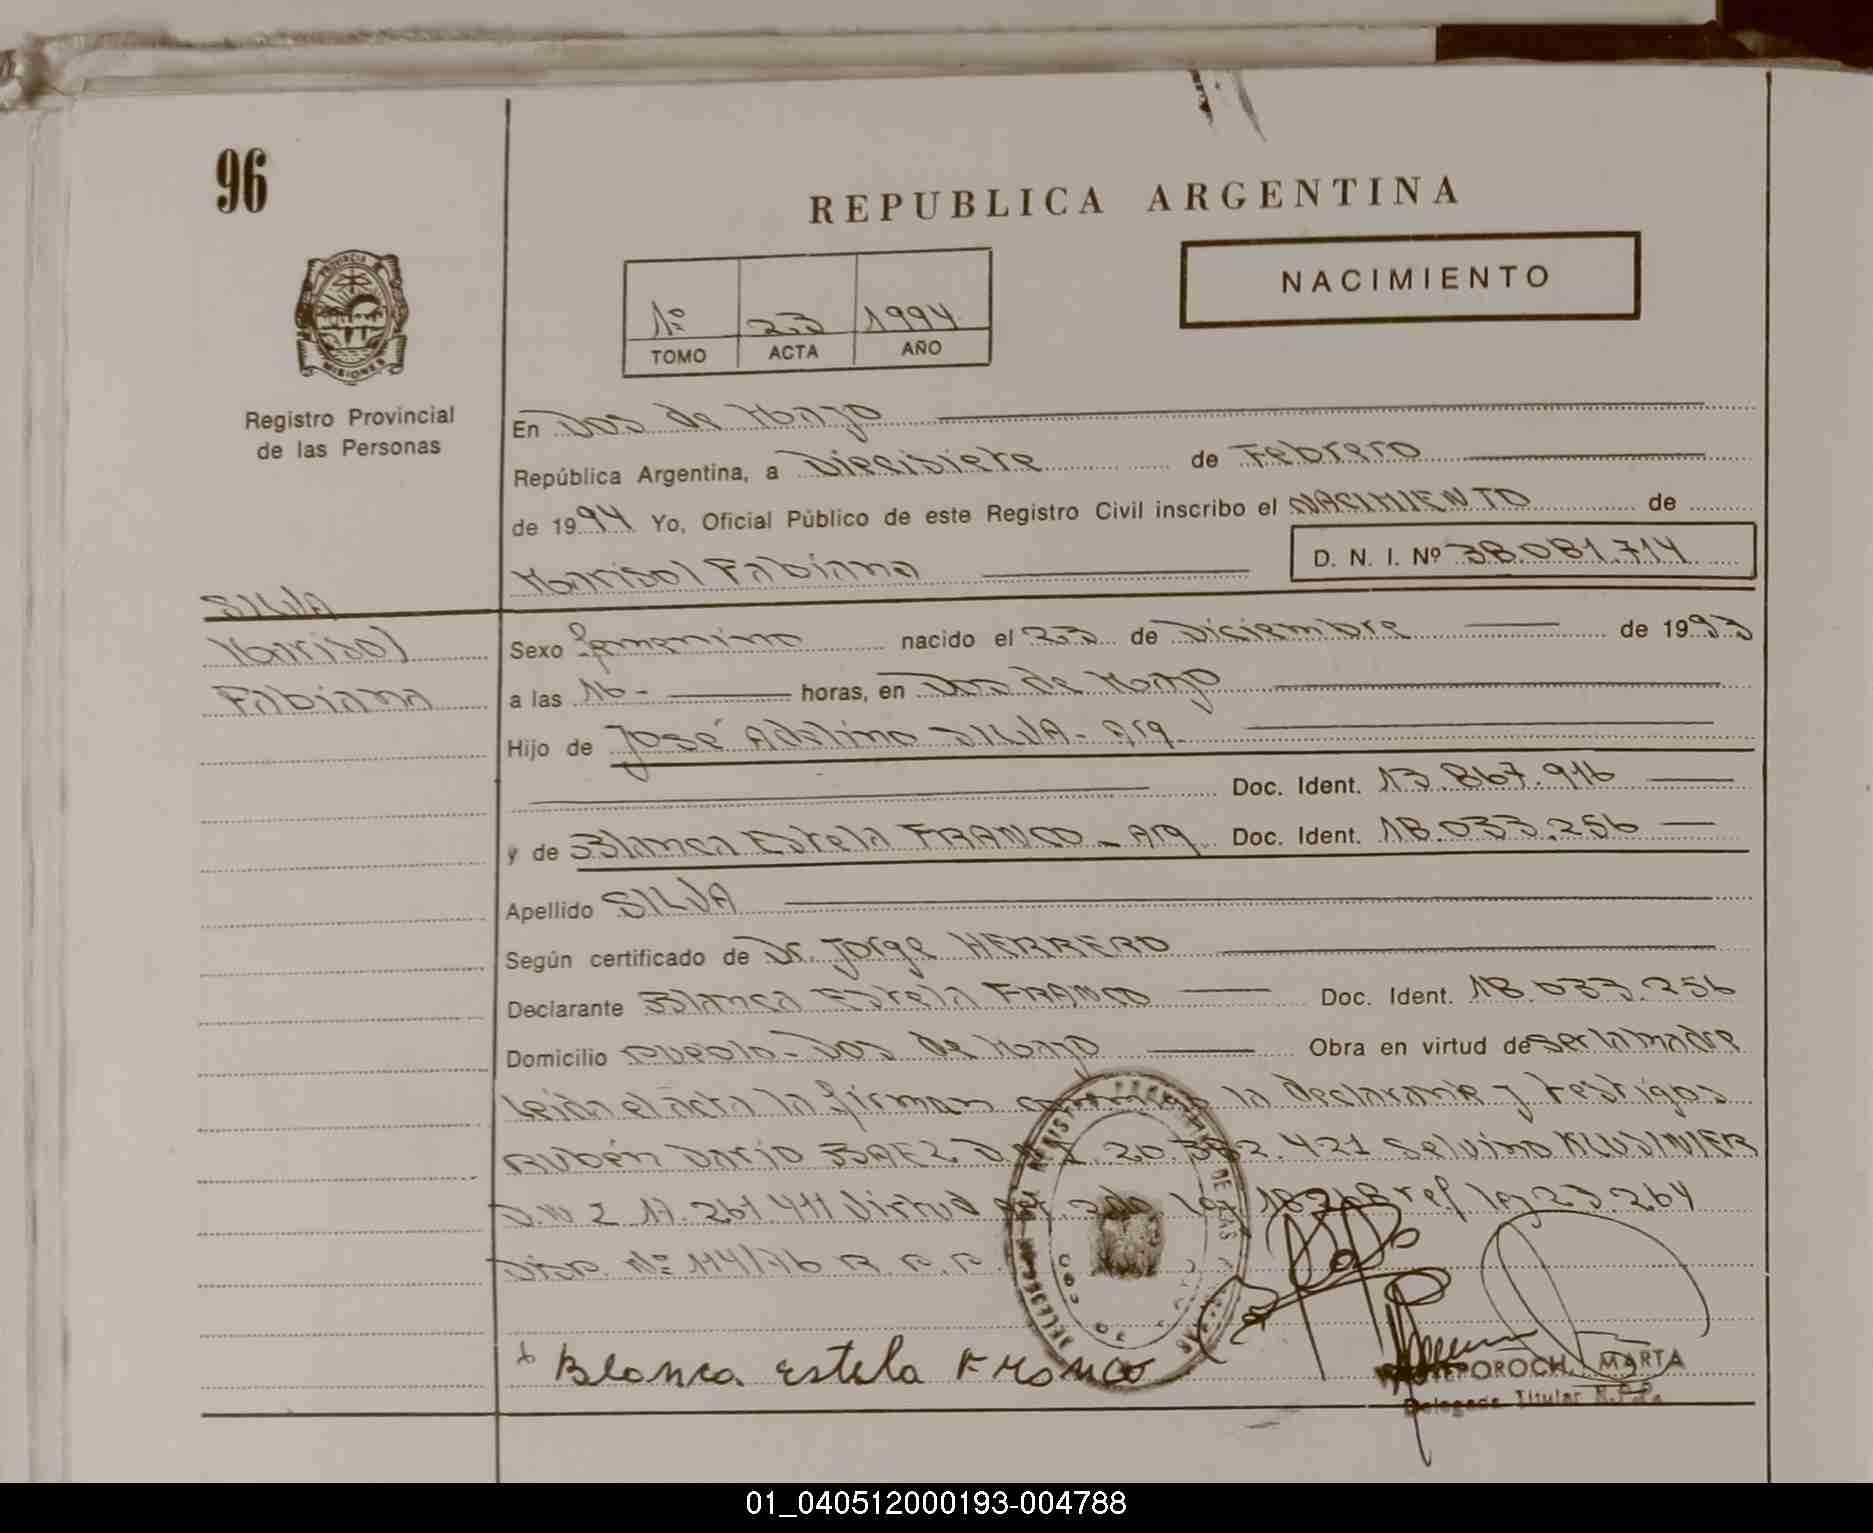 96
REPUBLICA ARGENTINA
NACIMIENTO
1º 23 1994
TOMO ACTA AÑO
PROVINCIA DE
MISIONES
Registro Provincial
de las Personas
En Dos de Mayo
República Argentina, a Diecisiete de Febrero
de 1994 Yo, Oficial Público de este Registro Civil inscribo el NACIMIENTO de
Marisol Fabiana D. N. I. Nº 38.081.714
SILVA
Marisol
Fabiana
Sexo femenino nacido el 23 de Diciembre de 1993
a las 16- horas, en Dos de Mayo
Hijo de José Adelino SILVA- Arg.
Doc. Ident. 13.867.916
y de Blanca Estela FRANCO - Arg. Doc. Ident. 18.033.256
Apellido SILVA
Según certificado de Dr. Jorge HERRERO
Declarante Blanca Estela FRANCO Doc. Ident. 18.033.256
Domicilio Pueblo- Dos de Mayo Obra en virtud de ser la madre
Leida el acta la firman conmigo la declarante y testigos
Rubén Dario BAEZ D.N.I. 20.382.421 Selvino
D.N.I 17.261.411 Virtud ley 18248 ref ley 23.264
Disp. Nº 114/76 R.P.P.
Blanca Estela Franco
MARTA
Delegada Titular R.P.P.
01_040512000193-004788